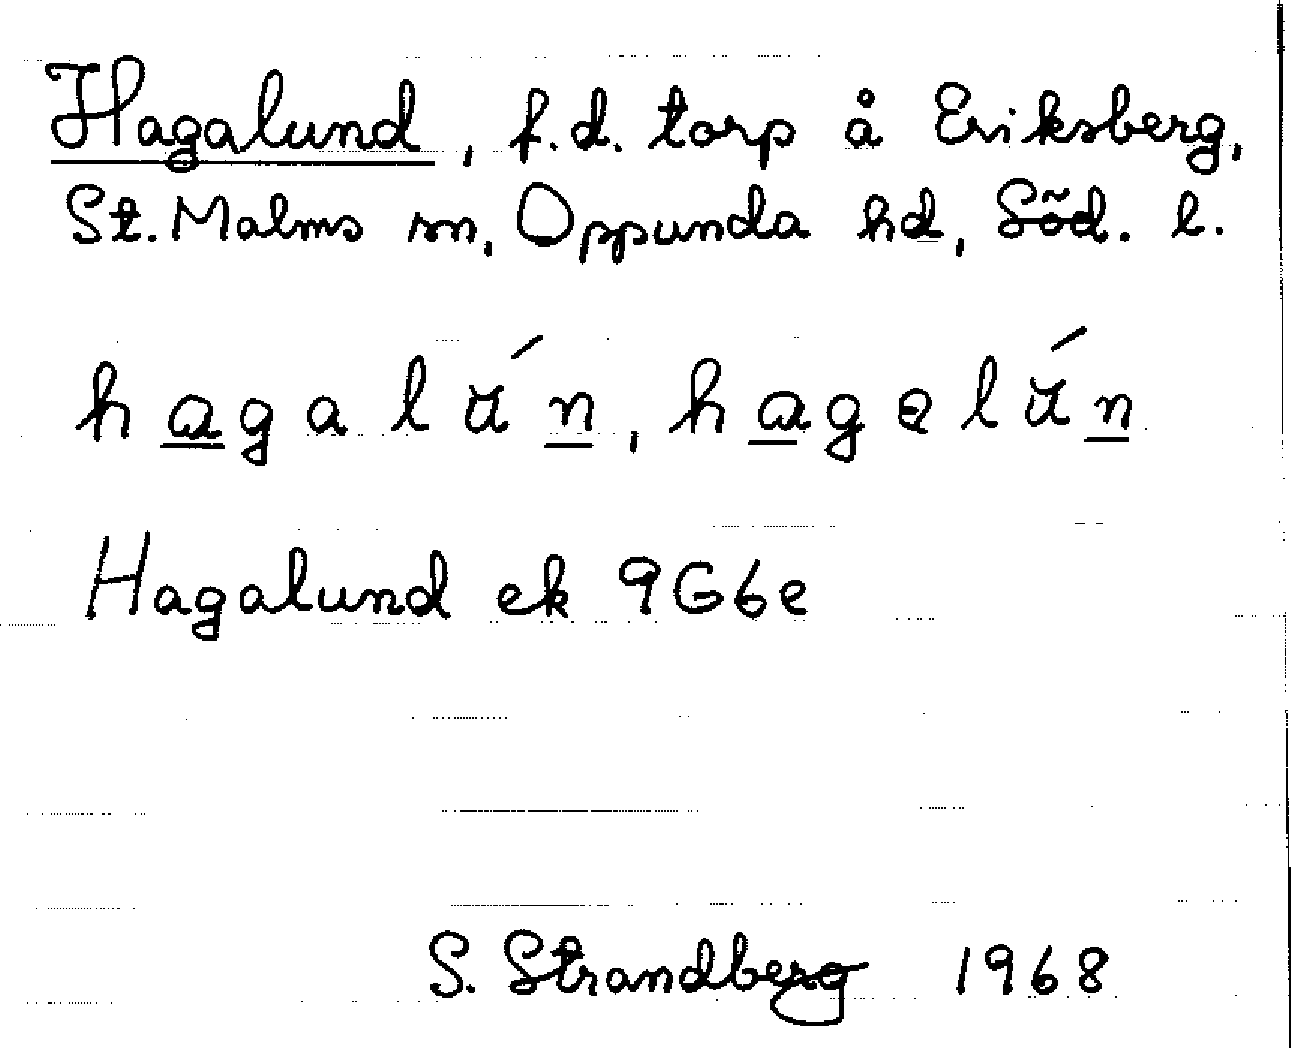 Hagalund, f.d. torp å Eriksberg,
St. Malms sn, Oppunda hd, Söd. l.
hagalu̇́n, hagəlu̇́n
Hagalund ek 9G6e
S. Strandberg 1968